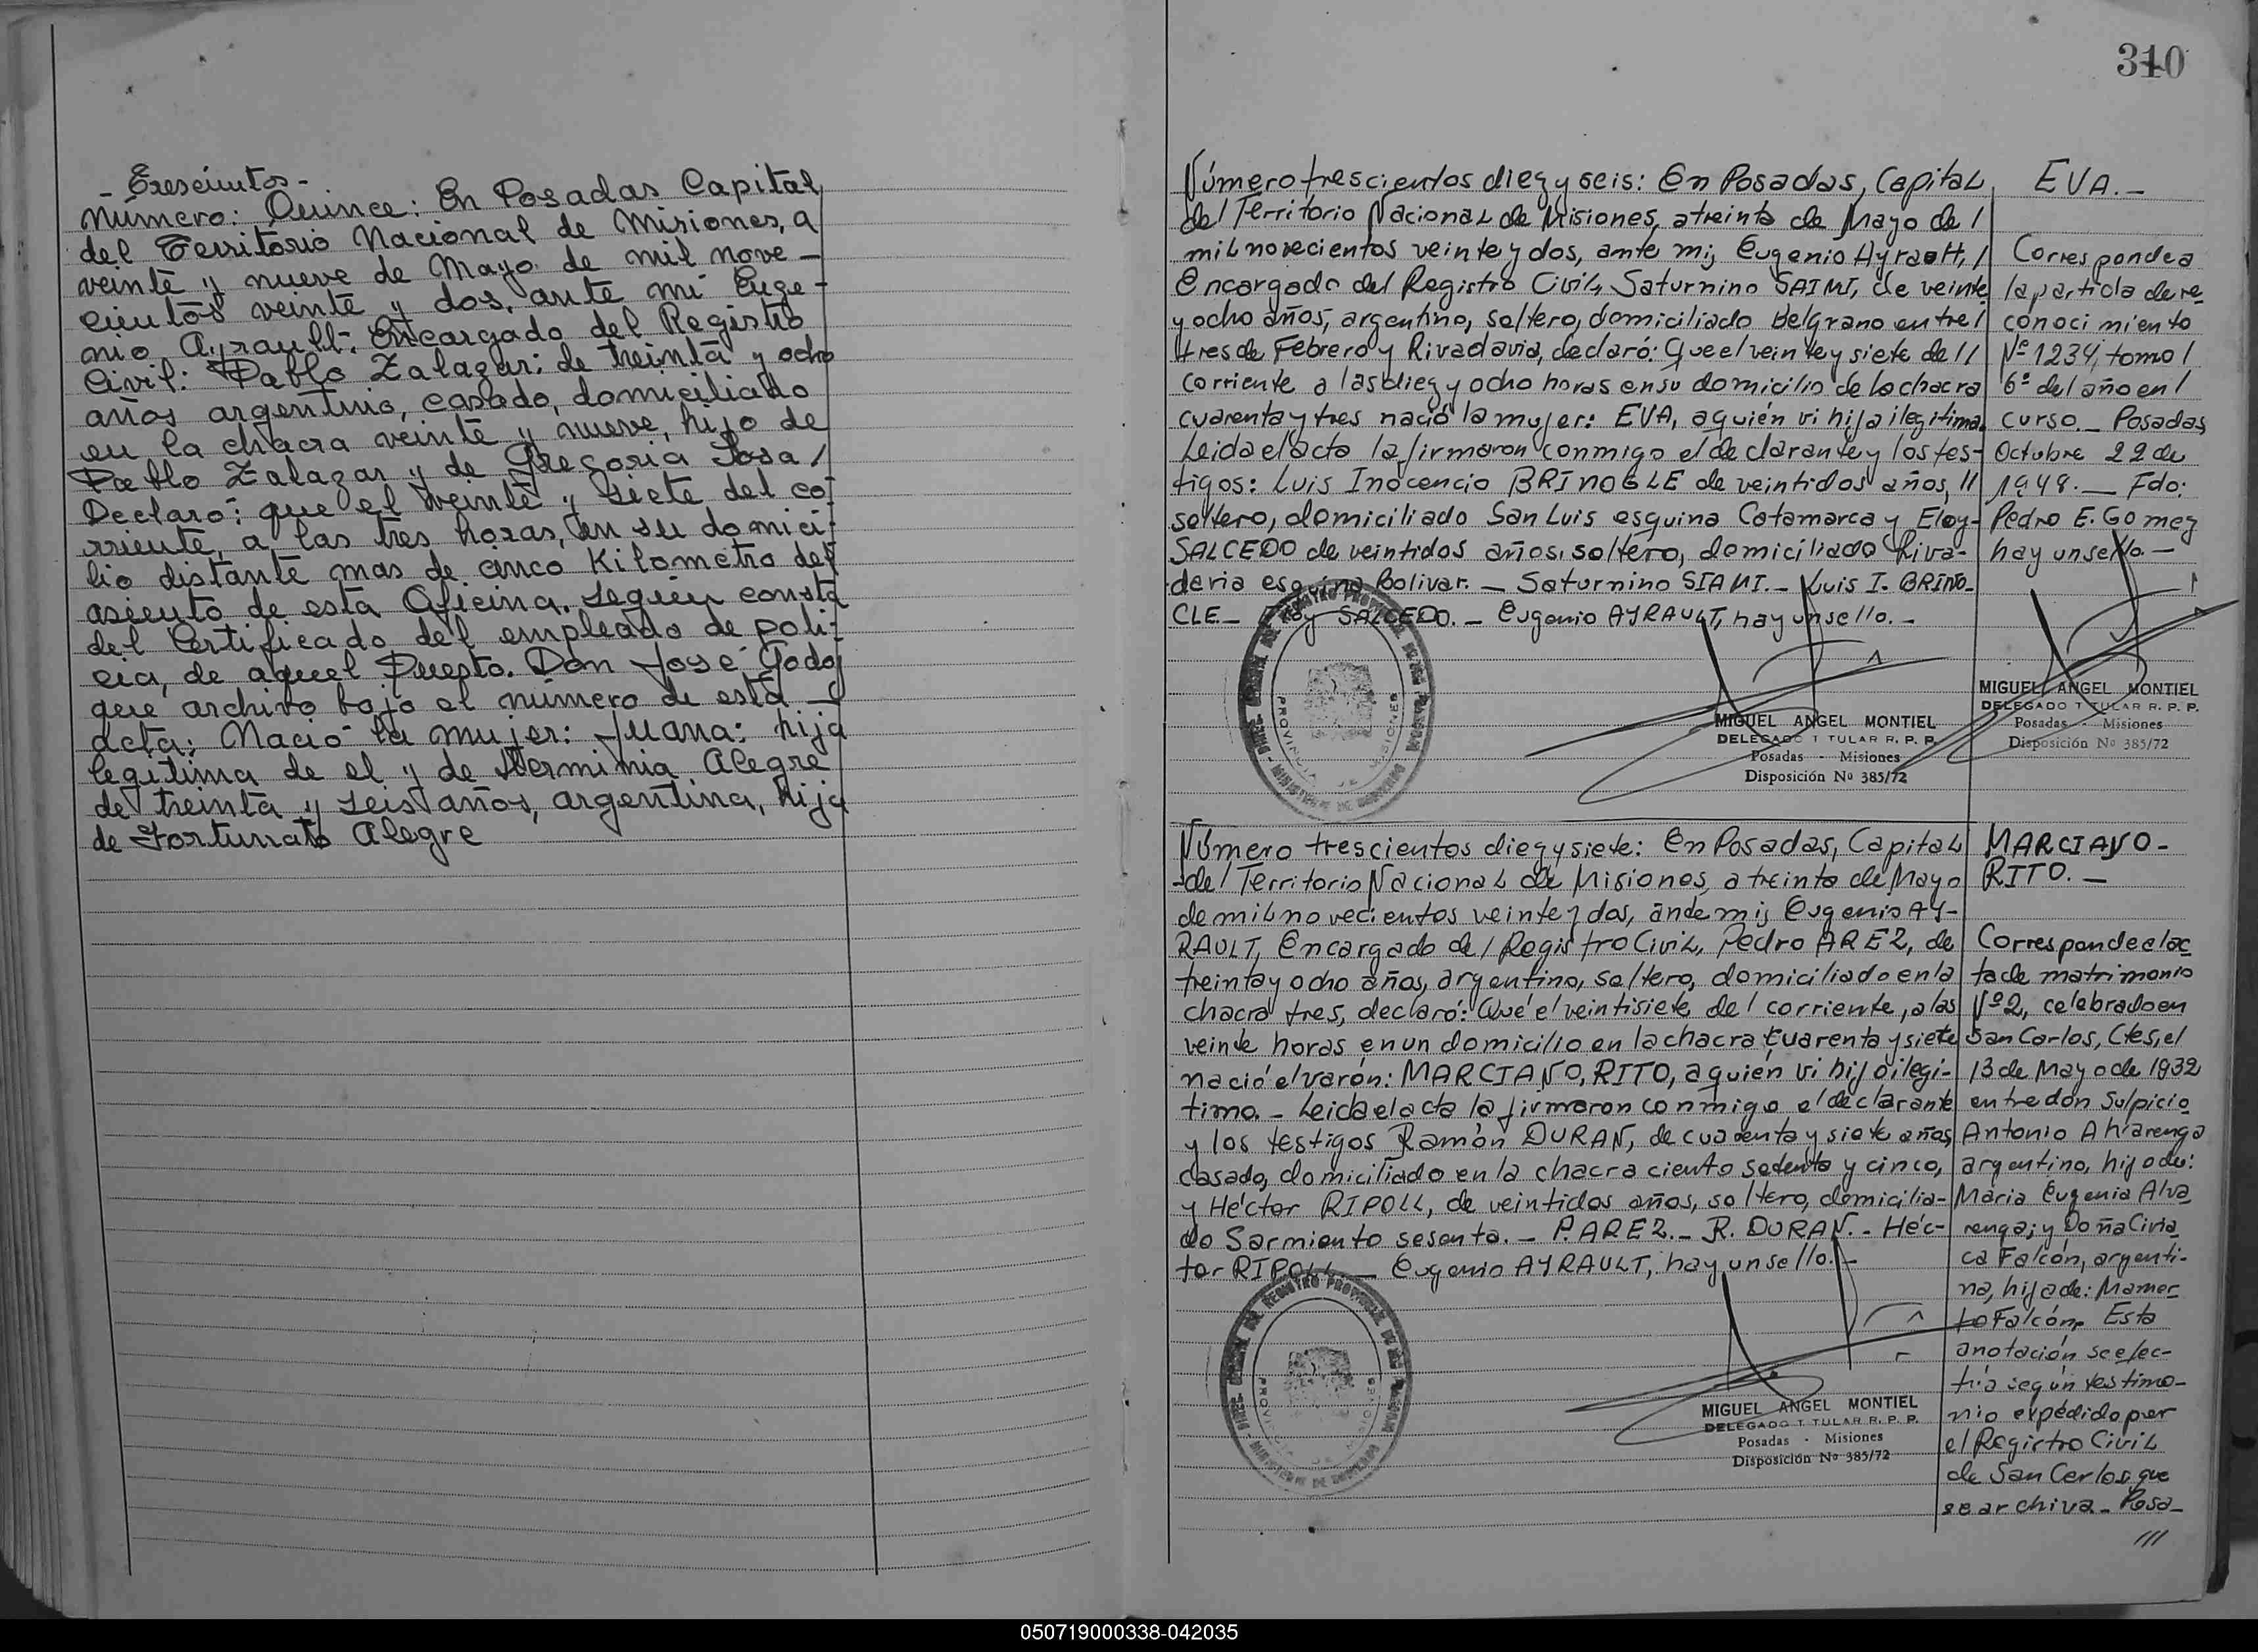 - Trescientos -
Número: Quince: En Posadas Capital
del Território Nacional de Misiones, a
veinte y nueve de Mayo de mil nove-
cientos veinte y dos, ante mi Euge-
nio Ayrault: Encargado del Registro
Civil: Pablo Zalazar: de treinta y ocho
años argentino, casado, domiciliado
en la chacra veinte y nueve, hijo de
Pablo Zalazar y de Gregoria Sosa /
Declaro: que el veinte y siete del co-
rriente, a las tres horas, en su domici-
lio distante mas de cinco Kilometro del
asiento de esta Oficina. Según consta
del Certificado del empleado de poli-
cia, de aquel Puesto. Don José Godoy
que archivo bajo el número de esta -
acta: Nació la mujer: Juana: hija
legitima de el y de Herminia Alegre
de treinta y seis años, argentina, hija
de Fortunato Alegre
310
Número trescientos diez y seis: En Posadas, Capital
del Territorio Nacional de Misiones, a treinta de Mayo de /
mil novecientos veinte y dos, ante mi, Eugenio Ayrault, /
Encargado del Registro Civil, Saturnino SAIMI, de veinte
y ocho años, argentino, soltero, domiciliado Belgrano entre /
tres de Febrero y Rivadavia, declaró: Que el veinte y siete del //
corriente a las diez y ocho horas en su domicilio de la chacra
cuarenta y tres nació la mujer: EVA, a quién vi hija ilegitima.
Leida el acta la firmaron conmigo el declarante y los tes-
tigos: Luis Inocencio BRINOGLE de veintidos años, //
soltero, domiciliado San Luis esquina Catamarca y Eloy-
SALCEDO de veintidos años, soltero, domiciliado Riva-
davia esquina Bolivar. - Saturnino SIAMI. - Luis I. BRINO-
CLE - Eloy SALCEDO. - Eugenio AYRAULT, hay un sello. -
EVA. -
Corresponde a
la partida de re-
conocimiento
Nº 1234, tomo /
6º del año en /
curso. - Posadas
Octubre 22 de
1948. - Fdo:
Pedro E. Gomez
hay un sello. -
MIGUEL ANGEL MONTIEL
DELEGADO TITULAR R. P. P.
Posadas - Misiones
Disposición Nº 385/72
MIGUEL ANGEL MONTIEL
DELEGADO TITULAR R. P. P.
Posadas - Misiones
Disposición Nº 385/72
Número trescientos diez y siete: En Posadas, Capital
del Territorio Nacional de Misiones, a treinta de Mayo
de mil novecientos veinte y dos, ande mi, Eugenio AY-
RAULT, Encargado del Registro Civil, Pedro AREZ, de
treinta y ocho años, argentino, soltero, domiciliado en la
chacra tres, declaró: Qué el veintisiete del corriente, a las
veinte horas en un domicilio en la chacra cuarenta y siete
nació el varón: MARCIANO, RITO, a quien vi hijo ilegi-
timo. - Leida el acta la firmaron conmigo el declarante
y los testigos Ramón DURAN, de cuarenta y siete años
casado, domiciliado en la chacra ciento setenta y cinco,
y Héctor RIPOLL, de veintidos años, soltero, domicilia-
do Sarmiento sesenta. - P. AREZ. - R. DURAN. - Héc-
tor RIPOLL - Eugenio AYRAULT, hay un sello. -
MARCIANO -
RITO. -
Corresponde el ac
ta de matrimonio
Nº 2, celebrado en
San Carlos, Ctes, el
13 de Mayo de 1932
entre don Sulpicio
Antonio Alvarenga
argentino, hijo de:
Maria Eugenia Alva
renga; y Doña Ciria
ca Falcón, argenti-
na, hija de: Mamer
to Falcón. Esta
anotación se efec-
túa según testimo-
nio expedido por
el Registro Civil
de San Carlos que
se archiva. - Posa-
///
MIGUEL ANGEL MONTIEL
DELEGADO TITULAR R. P. P.
Posadas - Misiones
Disposición Nº 385/72
050719000338-042035